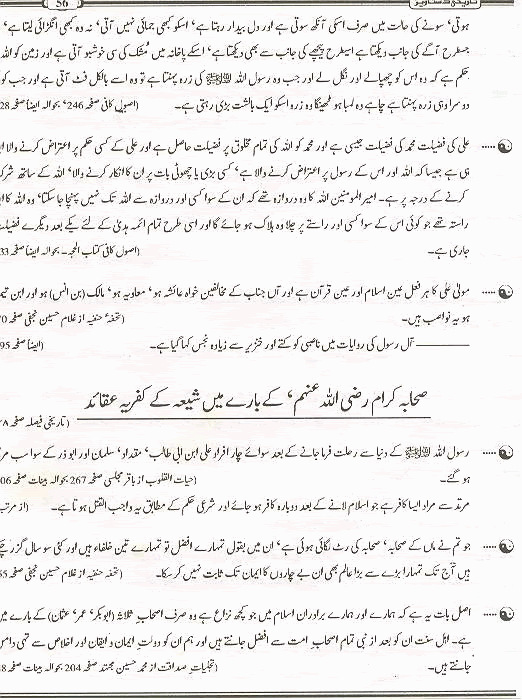 56
تاریخی دستاویز
ہوتی، سونے کی حالت میں صرف اسکی آنکھ سوتی ہے اور دل بیدار رہتا ہے، اسکو کبھی جمائی نہیں آتی، نہ وہ کبھی انگڑائی لیتا ہے،
جسطرح آگے کی جانب دیکھتا ہے اسیطرح پیچھے کی جانب سے بھی دیکھتا ہے، اسکے پاخانہ میں مشک کی سی خوشبو آتی ہے اور زمین کو اللہ
حکم ہے کہ وہ اس کو چھپالے اور نگل لے اور جب وہ رسول اللہ ﷺ کی زرہ پہنتا ہے تو وہ اسے بالکل فٹ آتی ہے اور جب کو
دوسرا وہی زرہ پہنتا ہے چاہے وہ لمبا ہو ٹھگنا وہ زرہ اسکو ایک بالشت بڑی رہتی ہے۔ (اصول کافی صفحہ 246، بحوالہ ایضاً صفحہ 28
علی کی فضیلت محمد کی فضیلت جیسی ہے اور محمد کو اللہ کی تمام مخلوق پر فضیلت حاصل ہے اور علی کے کسی حکم پر اعتراض کرنے والا ا
ہی ہے جیسا کہ اللہ اور اس کے رسول پر اعتراض کرنے والا ہے، کسی بڑی یا چھوٹی بات پر ان کا انکار کرنے والا، اللہ کے ساتھ شرک
کرنے کے درجہ پر ہے۔ امیر المومنین اللہ کا وہ دروازہ تھے کہ ان کے سوا کسی اور دروازہ سے اللہ تک نہیں پہنچا جا سکتا، وہ اللہ کا
راستہ تھے جو کوئی اس کے سوا کسی اور راستے پر چلا وہ ہلاک ہو جائے گا اور اسی طرح تمام ائمہ ہدیٰ کے لئے یکے بعد دیگرے فضیلت
جاری ہے۔ (اصول کافی کتاب الحجہ۔ بحوالہ ایضاً صفحہ 33
مولیٰ علی کا ہر فعل عین اسلام اور عین قرآن ہے اور آں جناب کے مخالفین خواہ عائشہ ہو، معاویہ ہو، مالک (بن انس) ہو اور ابن تیم
ہو یہ نواصب ہیں۔ (تحفۂ حنفیہ از غلام حسین نجفی صفحہ 0
آل رسول کی روایات میں ناصبی کو کتے اور خنزیر سے زیادہ نجس کہا گیا ہے۔ (ایضاً صفحہ 95
صحابہ کرام رضی اللہ عنہم، کے بارے میں شیعہ کے کفریہ عقائد
(تاریخی فیصلہ صفحہ ۸
رسول اللہ ﷺ کے دنیا سے رحلت فرما جانے کے بعد سوائے چار افراد علی ابن ابی طالب، مقداد، سلمان اور ابوذر کے سوا سب مر
ہو گئے۔ (حیات القلوب از باقر مجلسی صفحہ 267 بحوالہ بینات صفحہ 06
مرتد سے مراد ایسا کافر ہے جو اسلام لانے کے بعد دوبارہ کافر ہو جائے اور شرعی حکم کے مطابق یہ واجب القتل ہوتا ہے۔ (از مرتب
جو تم نے ماں کے صحابہ، صحابہ کی رٹ لگائی ہوئی ہے، ان میں بقول تمہارے افضل تو تمہارے تین خلفاء ہیں اور کئی سو سال گزر چکے
ہیں آج تک تمہارا بڑے سے بڑا عالم بھی ان بے چاروں کا ایمان تک ثابت نہیں کر سکا۔ (تحفہ حنفیہ از غلام حسین نجفی صفحہ 65
اصل بات یہ ہے کہ ہمارے اور ہمارے برادران اسلام میں جو کچھ نزاع ہے وہ صرف اصحاب ثلاثہ (ابوبکر، عمر، عثمان) کے بارے میں
ہے۔ اہل سنت ان کو بعد از نبی تمام اصحاب امت سے افضل جانتے ہیں اور ہم ان کو دولت ایمان و ایقان اور اخلاص سے تہی دامن
جانتے ہیں۔ (تجلیات صداقت از محمد حسین مجتہد صفحہ 204 بحوالہ بینات صفحہ 8